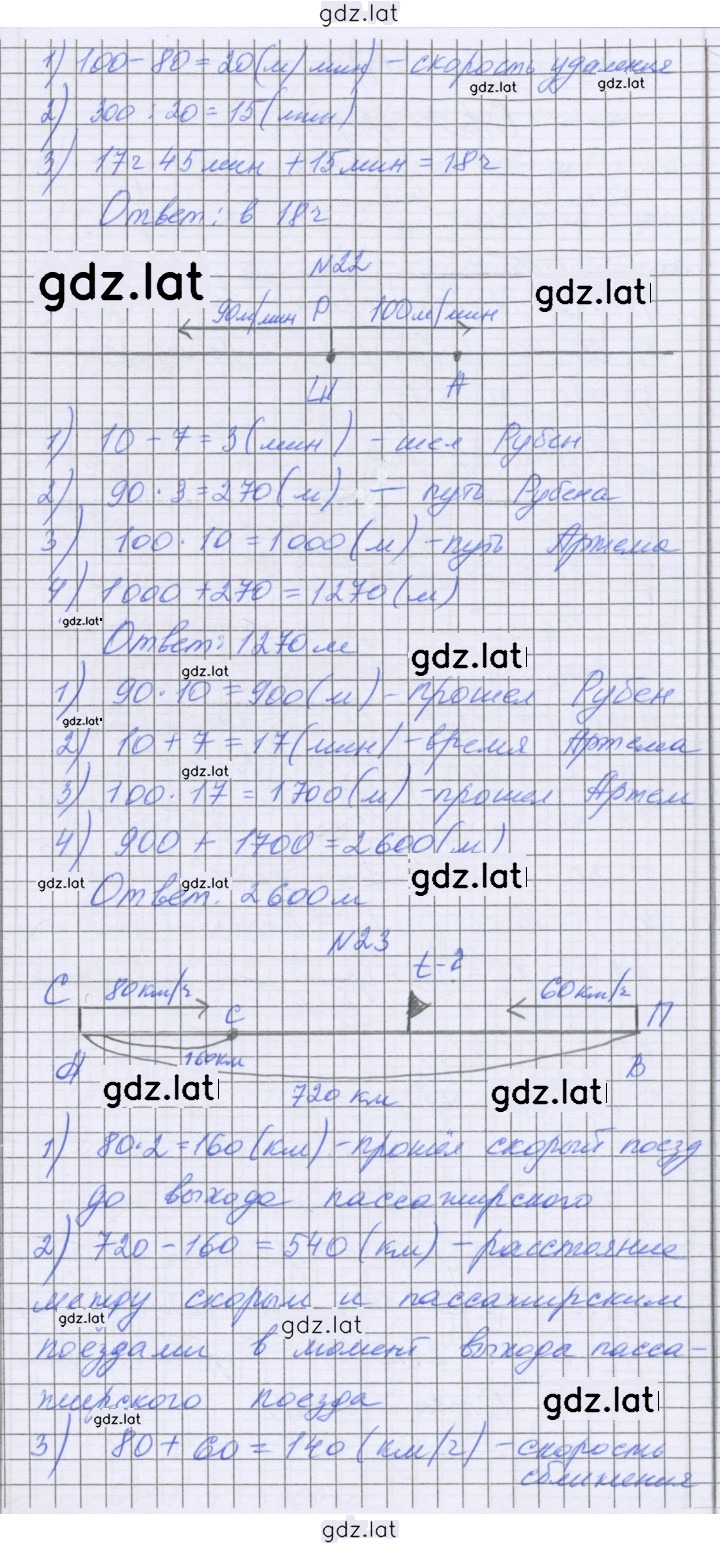 gdz.lat
1) 100 - 80 = 20 (м/мин) - скорость удаления
gdz.lat gdz.lat
2) 300 : 20 = 15 (мин)
3) 17ч 45мин + 15мин = 18ч
Ответ: в 18ч
N22
gdz.lat gdz.lat
90м/мин Р 100м/мин
Ш А
1) 10 - 7 = 3 (мин) - шел Рубен
2) 90 · 3 = 270 (м) - путь Рубена
3) 100 · 10 = 1000 (м) - путь Артема
4) 1000 + 270 = 1270 (м)
gdz.lat
Ответ: 1270м
gdz.lat gdz.lat
1) 90 · 10 = 900 (м) - прошел Рубен
gdz.lat
2) 10 + 7 = 17 (мин) - время Артема
gdz.lat
3) 100 · 17 = 1700 (м) - прошел Артем
4) 900 + 1700 = 2600 (м)
gdz.lat gdz.lat gdz.lat
Ответ: 2600м
N23
t - ?
С 80км/ч с 60км/ч П
А 160км В
gdz.lat gdz.lat
720 км
1) 80 · 2 = 160 (км) - прошёл скорый поезд
до выхода пассажирского
2) 720 - 160 = 540 (км) - расстояние
между скорым и пассажирским
gdz.lat gdz.lat
поездами в момент выхода пасса-
жирского поезда
gdz.lat gdz.lat
3) 80 + 60 = 140 (км/ч) - скорость
сближения
gdz.lat